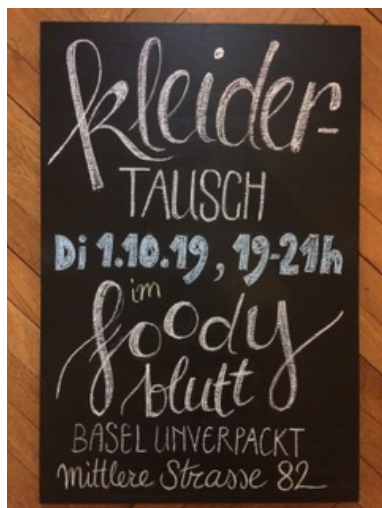 kleider-
TAUSCH
Di 1.10.19, 19-21h
im
foody
blutt
BASEL UNVERPACKT
Mittlere Strasse 82